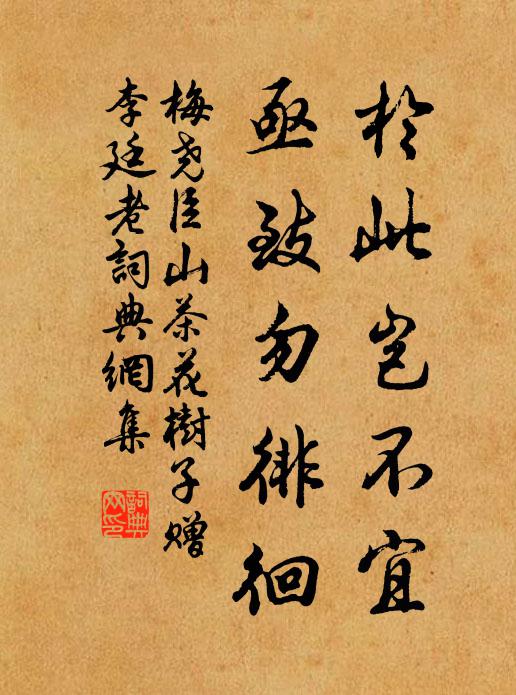 於此豈不宜
亟致勿徘徊
梅尧臣山茶花樹子赠
李廷老詞典網集
詞典
网印